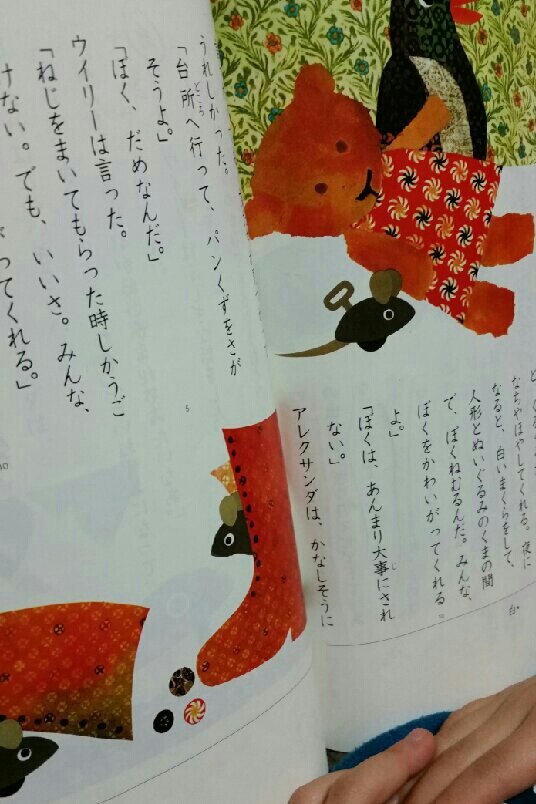 なちやほやしてくれる。夜に
なると、白いまくらをして、
人形とぬいぐるみのくまの間
で、ぼくねむるんだ。みんな、
ぼくをかわいがってくれる
よ。」
「ぼくは、あんまり大事にされ
じ
ない。」
アレクサンダは、かなしそうに
白
うれしかった。
「台所へ行って、パンくずをさが
どころ
そうよ。」
「ぼく、だめなんだ。」
5
ウイリーは言った。
「ねじをまいてもらった時しかうご
けない。でも、いいさ。みんな、
ってくれる。」